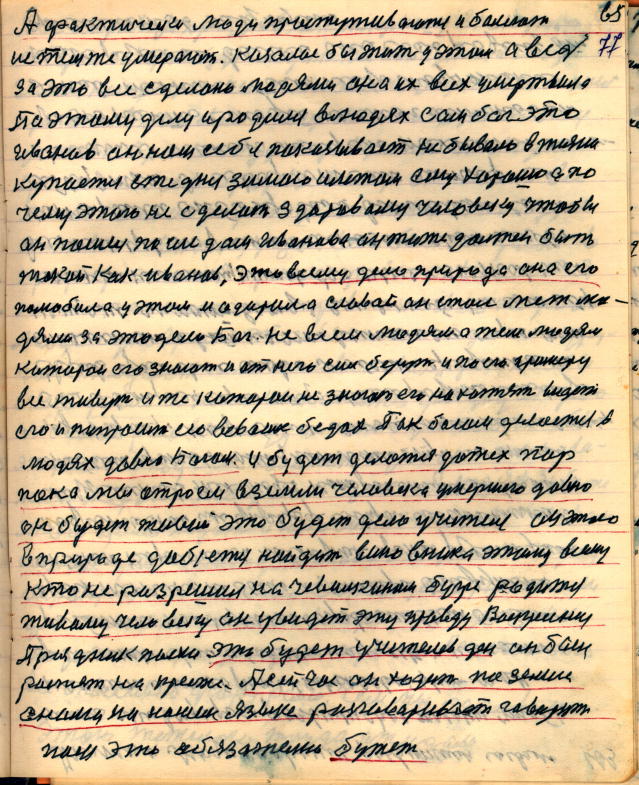 А фрактически люди простуживаются и болеют 65
и тем же умерают. Казалос бы этим у этом а вед 77
за это все сделано морями она их всех умертвила
Па этаму делу и родился в людях сам бог это
Иванов он нам себя показывает небывало в жизни
купается сже дня зимаю и летам ему харашо а по
чему этаго не сделат здаровому человеку чтобы
он пошел после дам Иванова он тиже должен быть
такой как иванов, это всему дело природа она его
полюбила у этом и адарила славай он стал меж лю-
дями за это дело Бог. не всем людям а тем людям
каторои его знают и от него сил берут и по его примеру
все живут и те каторои не знают его на хотят видет
его и попросит его в евоих бедах Так богам делается в
людях давно Богам. и будет делатся до тех пор
пока мы отроем в земли человека умершего давно
он будет живой это будет дело учителя он этого
в природе добется найдет виновника этаму всему
кто не разрешил на чевилкином бугре родится
живаму человеку он увидет эту правду Васкресину
Праздник пасхи это будет учителев ден он был
распят на кресте. А сейчас он ходит па земли
снами па нашем языке разговаривает гаварит
нам это абязателно будет